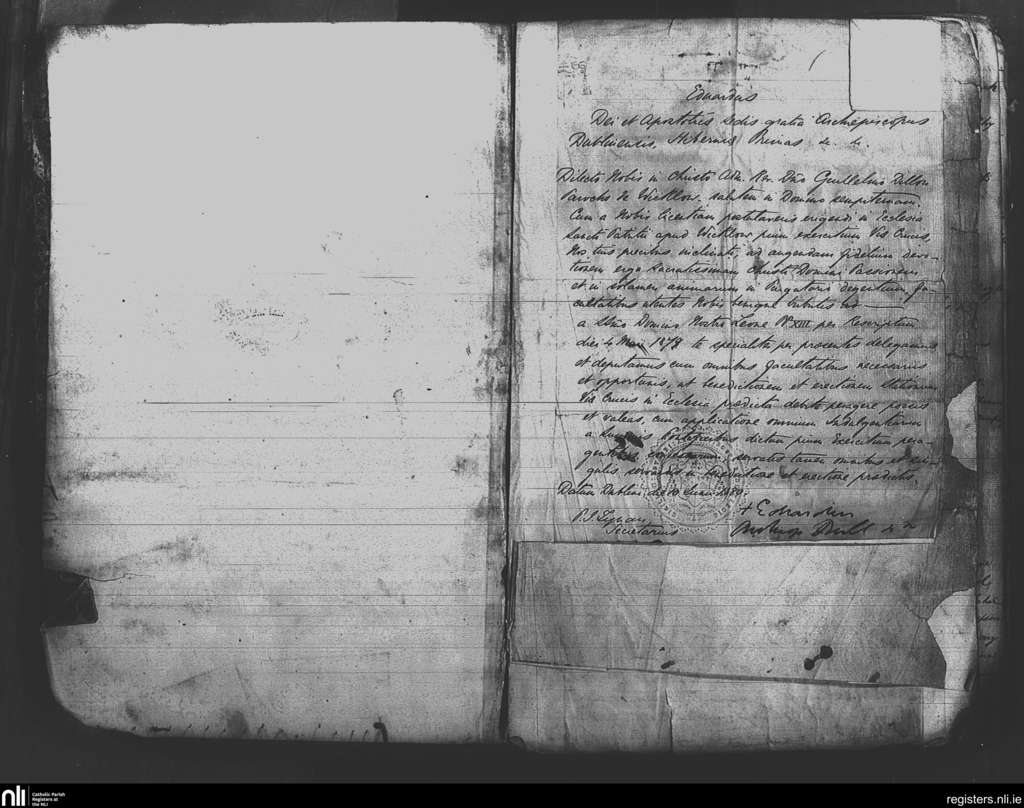 Eduardus
Dei et Apostolicae Sedis gratia Archiepiscopus
Dubliniensis, Hiberniae Primas &c. &c.
Dilecto Nobis in Christo Adm. Rev. Dño Gulielmo Dillon
Parocho de Wicklow, salutem in Domino sempiternam.
Cum a Nobis licentiam postulaveris erigendi in Ecclesia
Sancti Patritii apud Wicklow pium exercitium Viae Crucis,
Nos tuis precibus inclinati, ad augendam fidelium devo-
tionem erga Sacratissimam Christi Domini Passionem
et in solamen animarum in Purgatorio degentium, fa-
cultatibus utentes Nobis benigne tributis
a SSño Domino Nostro Leone PP XIII per Rescriptum
diei 4 1878 te specialiter per praesentes delegamus
et deputamus cum omnibus facultatibus necessariis
et opportunis, ut benedictionem et erectionem Stationum
Viae Crucis in Ecclesia praedicta debite peragere possis
et valeas, cum applicatione omnium Indulgentiarum
a Summis Pontificibus dictum pium exercitium pera-
gentibus servatis tamen omnibus et sin-
gulis servandis in benedictione et erectione praedictis.
Datum Dublini die 10
Secretarius
+ Eduardus
registers.nli.ie
nli
Catholic Parish
Registers at
the NLI